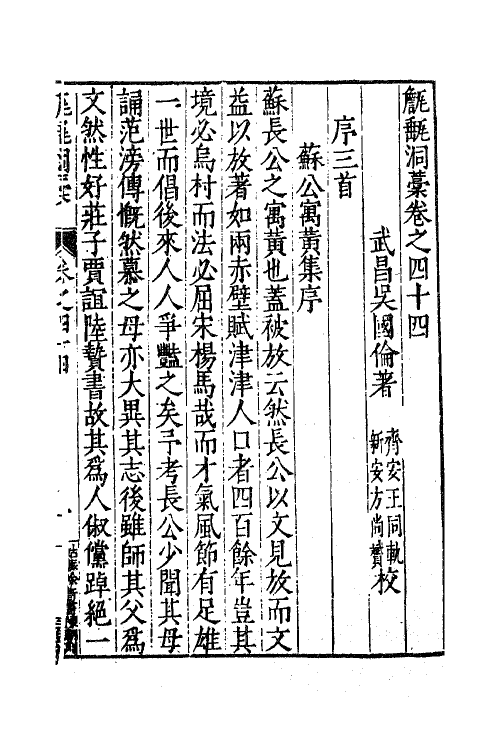 甔甀洞藁卷之四十四
武昌吳國倫著 齊安王同軌 新安方尚贇校
序三首
蘇公寓黃集序
蘇長公之寓黃也蓋被放云然長公以文見放而文
益以放著如兩赤壁賦津津人口者四百餘年豈其
境必烏村而法必屈宋楊馬哉而才氣風節有足雄
一世而倡後來人人爭豔之矣予考長公少聞其母
誦范滂傳慨然慕之母亦大異其志後雖師其父為
文然性好莊子賈誼陸贄書故其為人俶儻踔絕一
卷之四十四
一